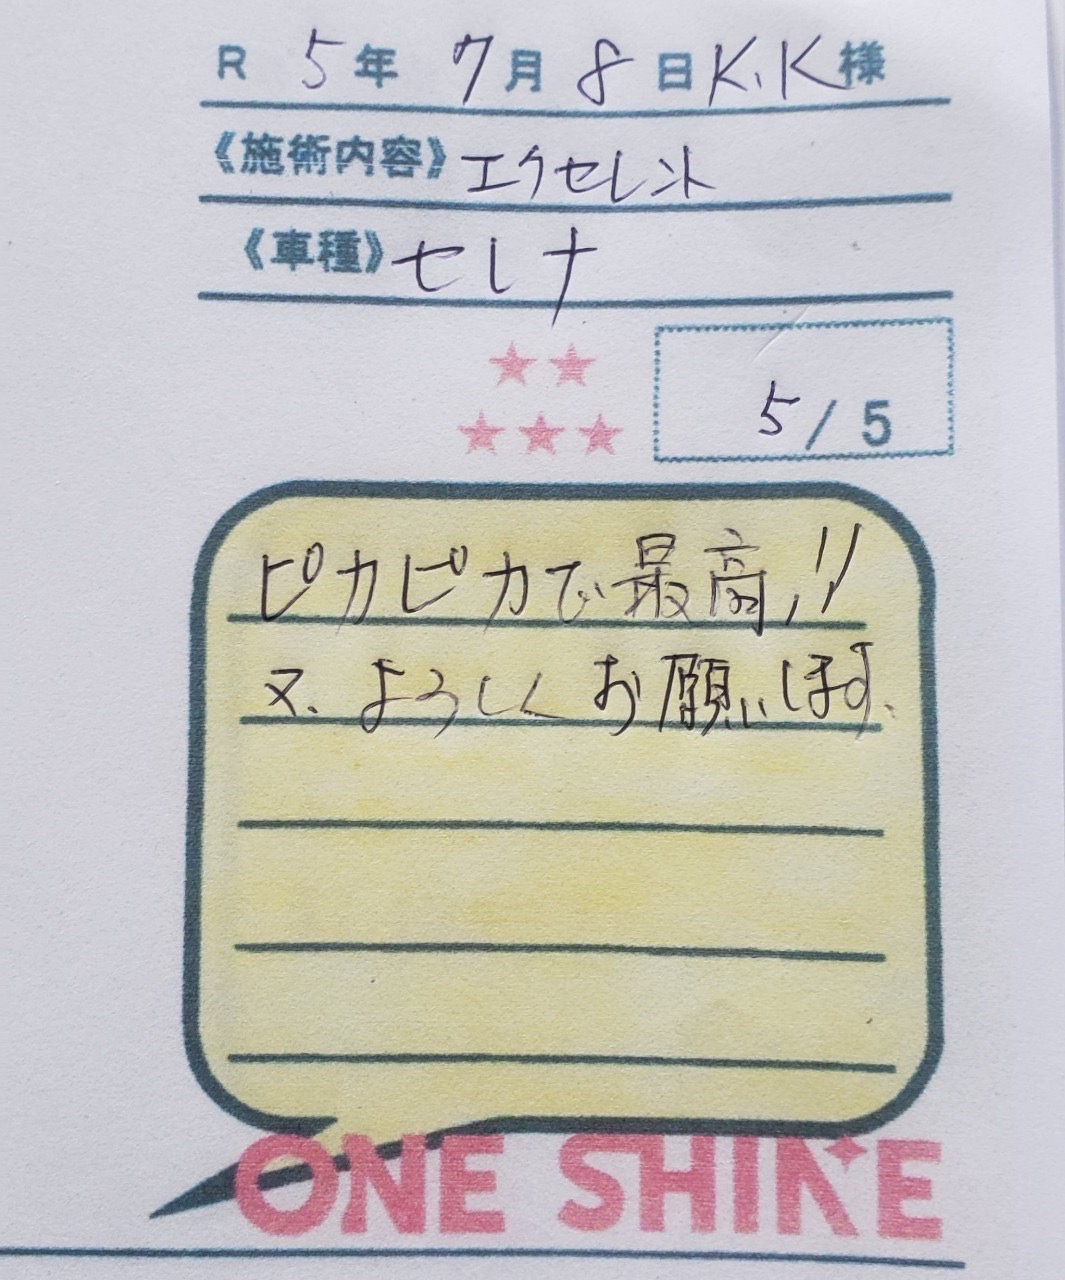 R 5年 7月 8日 K.K様
《施術内容》エクセレント
《車種》セレナ
5/5
ピカピカで最高!!
又、よろしくお願いします。
ONE SHINE